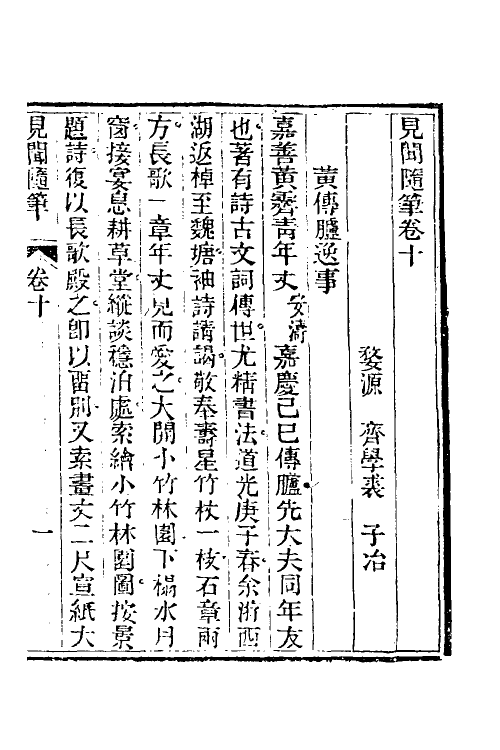 見聞隨筆卷十
婺源 齊學裘 子冶
黃傳臚逸事
嘉善黃霽青年丈安濤嘉慶己巳傳臚先大夫同年友
也著有詩古文詞傳世尤精書法道光庚子春余游西
湖返棹至魏塘袖詩謁敬奉壽星竹杖一枝石章兩
方長歌一章年丈見而愛之大開小竹林園下榻水月
窗接宴息耕草堂縱談穩泊處索繪小竹林園圖按景
題詩復以長歌殿之卽以留別又索畫丈二尺宣紙大
見聞隨筆 卷十 一